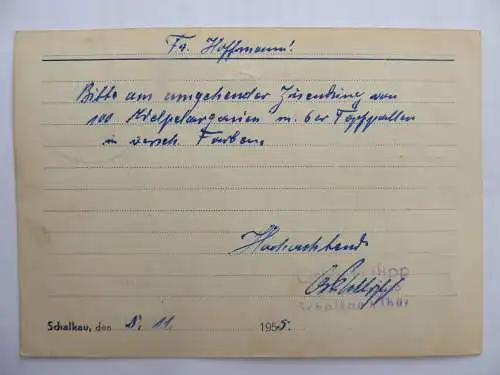 Fa. Hoffmann!
Bitte um umgehender Zusendung von
100 Edelpelargonien m. 6er Topfballen
in versch. Farben.
Hochachtend
Schalkau Thür
Schalkau, den 5. 11. 1955.